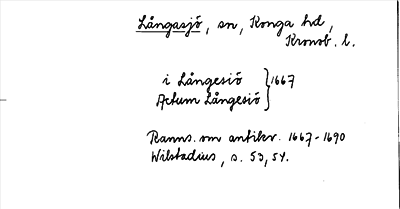 Långasjö, sn, Konga hd,
Kronob. l.
i Långesiö } 1667
Actum Långesiö
Ranns. om antikv. 1667-1690
Wilstadius, s. 53, 54.